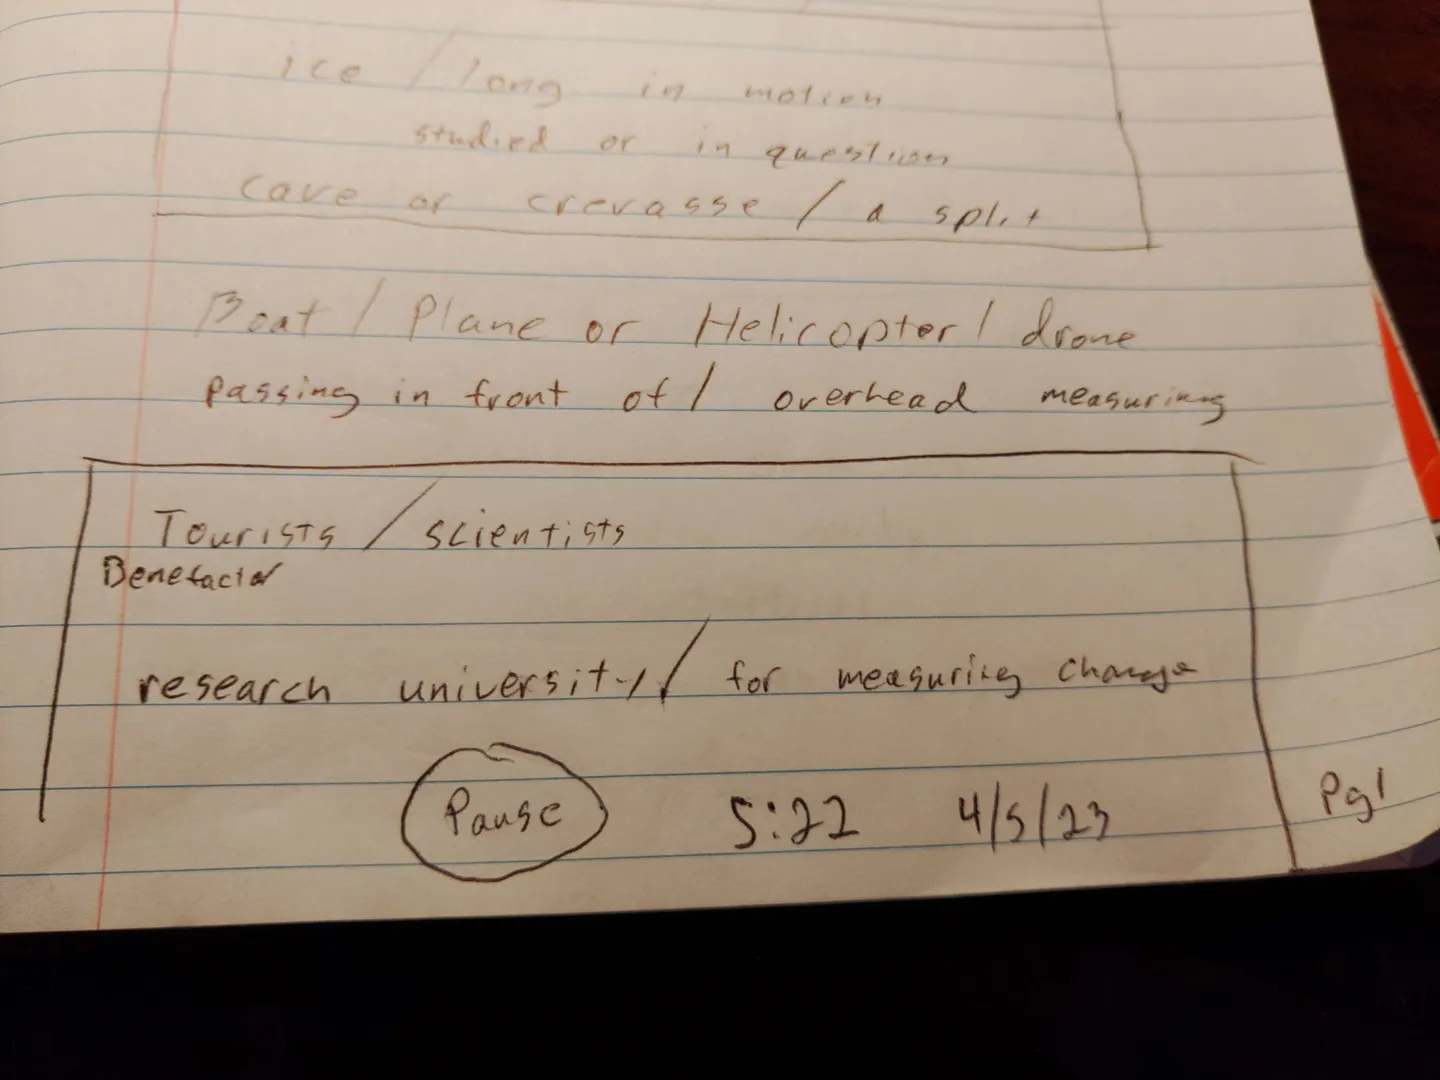 ice / long in motion
studied or in question
cave or crevasse / a split
Boat / Plane or Helicopter / drone
passing in front of / overhead measuring
Tourists / scientists
Benefactor
research university / for measuring change
Pause 5:22 4/5/23
Pg1